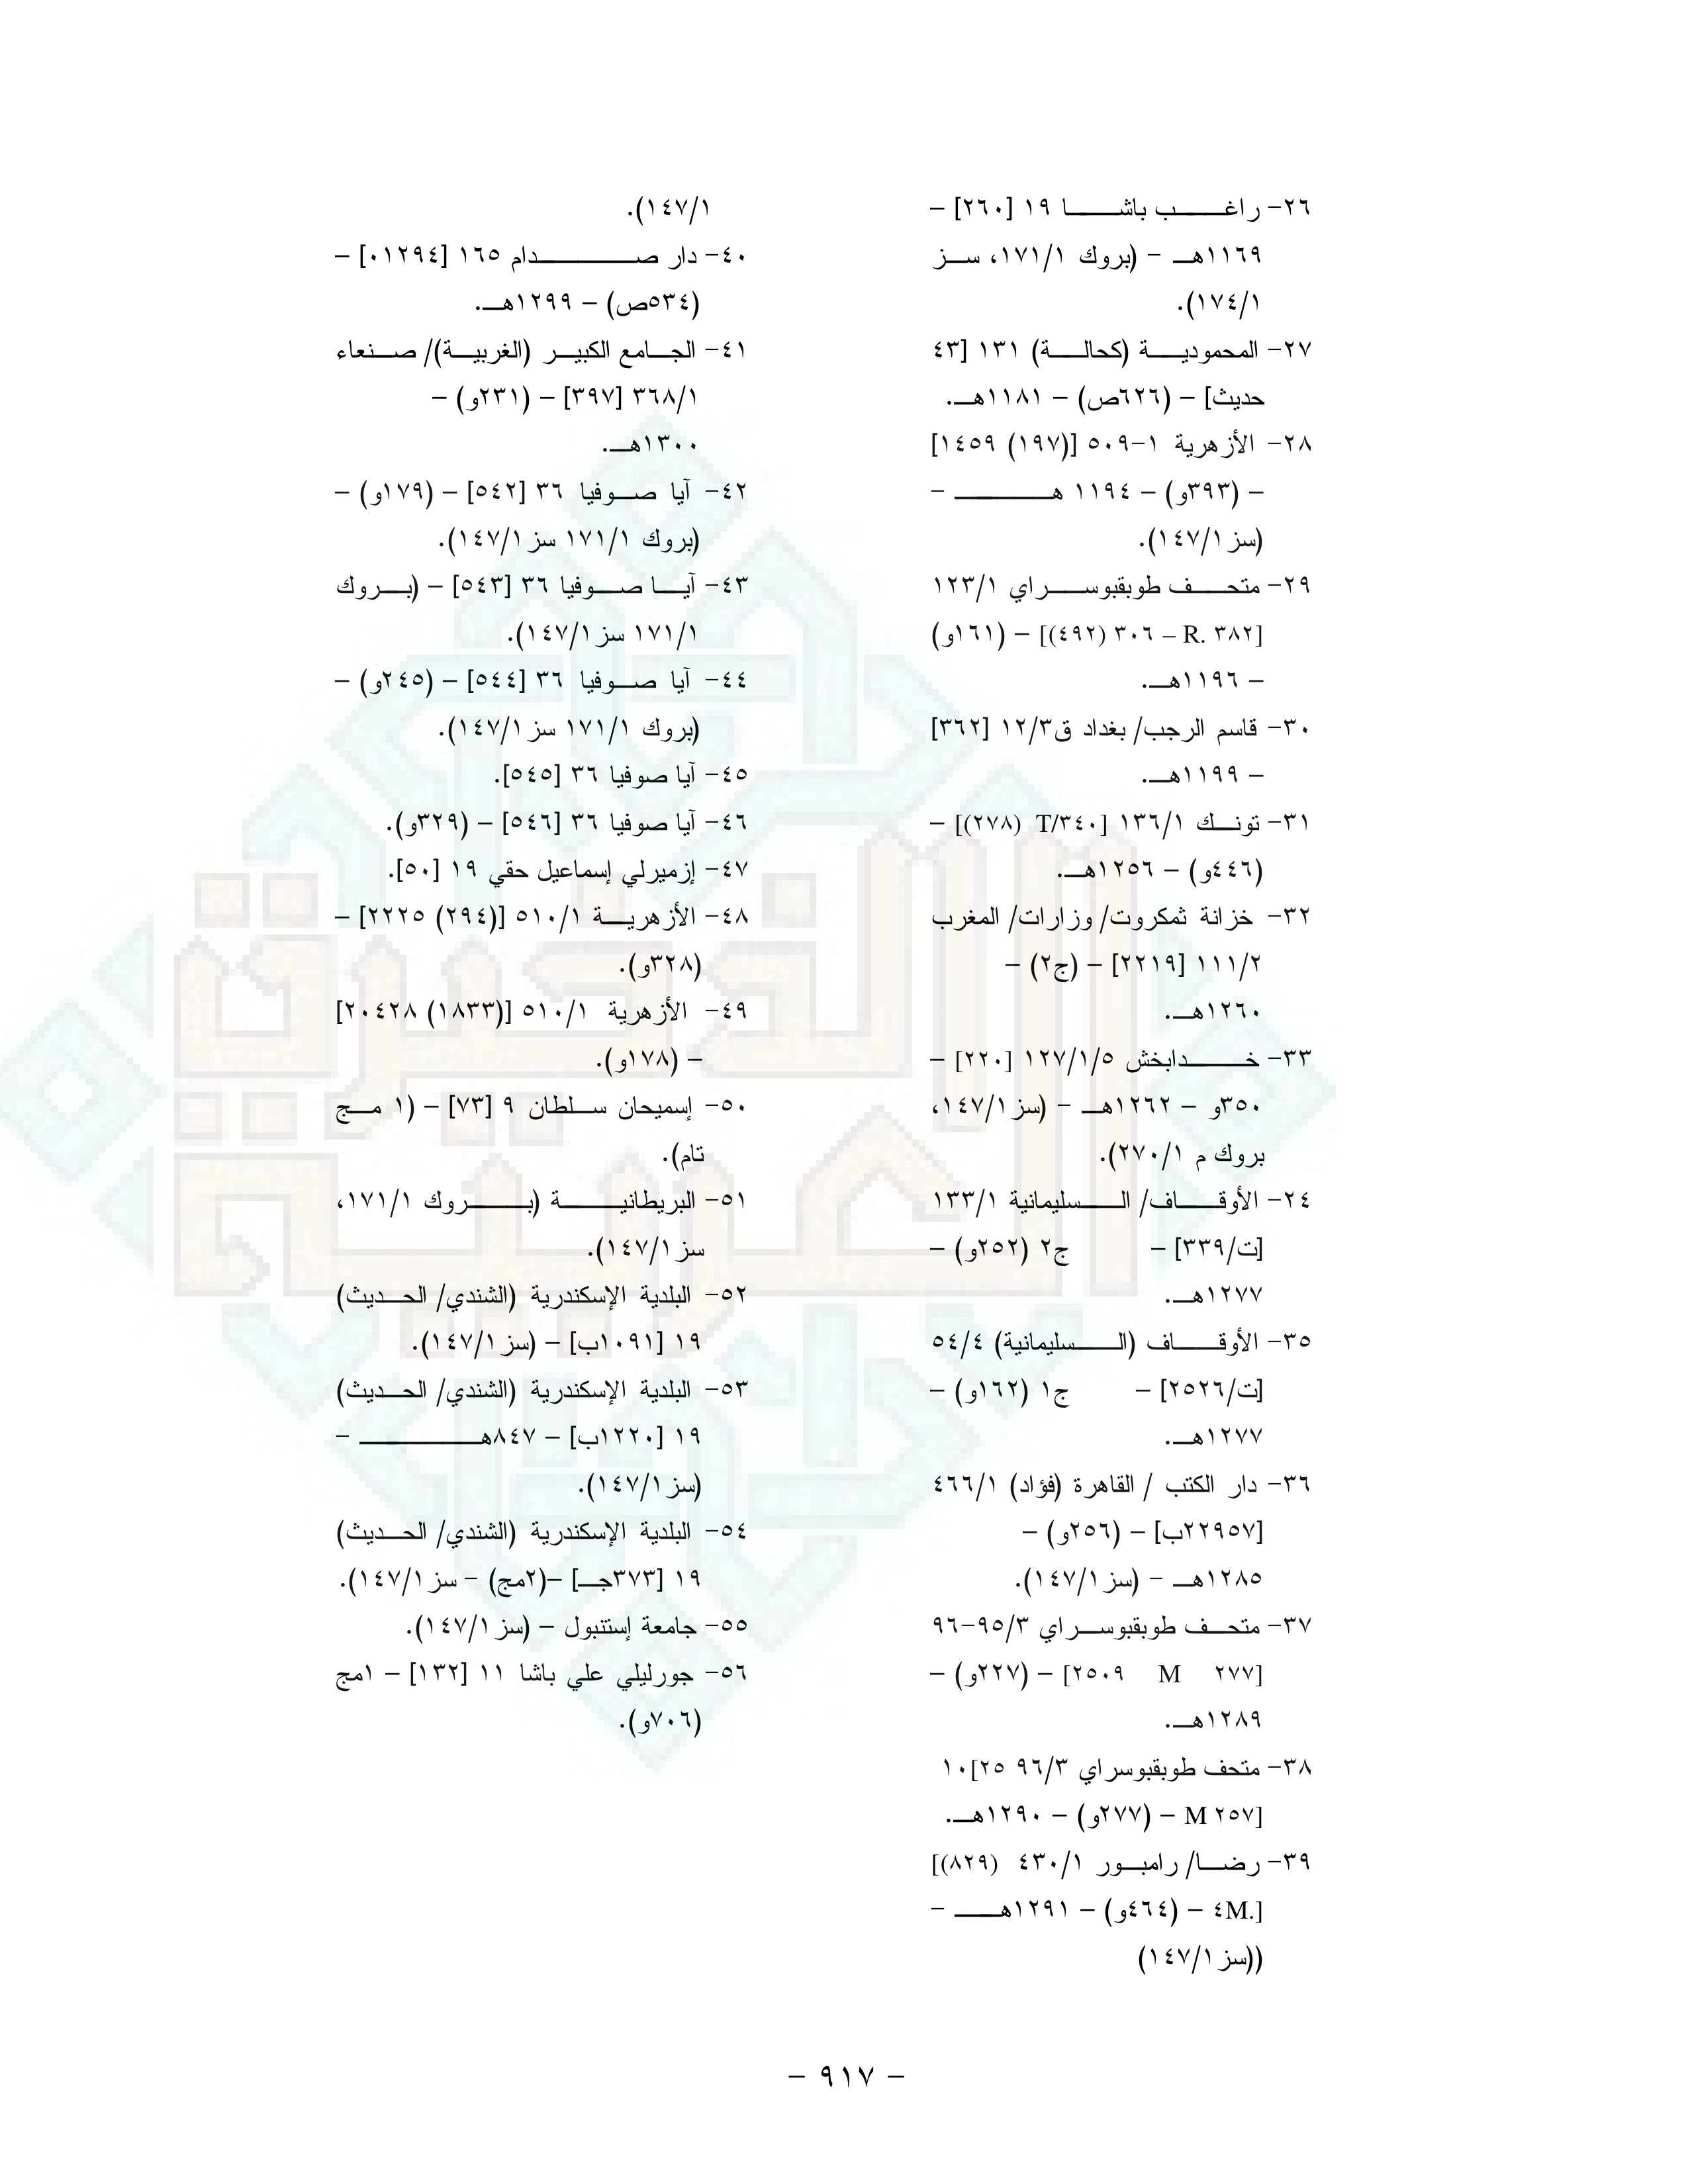 ٢٦- راغب باشا ١٩ [٢٦٠] –
١١٦٩هـ - (بروك ١٧١/١، سز
١٧٤/١).
٢٧- المحمودية (كحالة) ١٣١ [٤٣
حديث] – (٦٢٦ص) – ١١٨١هـ.
٢٨- الأزهرية ١-٥٠٩ [(١٩٧) ١٤٥٩]
– (٣٩٣و) – ١١٩٤ هـ -
(سز ١٤٧/١).
٢٩- متحف طوبقبوسراي ١٢٣/١
[٣٨٢ R. – ٣٠٦ (٤٩٢)] – (١٦١و)
– ١١٩٦هـ.
٣٠- قاسم الرجب/ بغداد ق١٢/٣ [٣٦٢]
– ١١٩٩هـ.
٣١- تونك ١٣٦/١ [٣٤٠/T (٢٧٨)] –
(٤٤٦و) – ١٢٥٦هـ.
٣٢- خزانة ثمكروت/ وزارات/ المغرب
١١١/٢ [٢٢١٩] – (ج٢) –
١٢٦٠هـ.
٣٣- خدابخش ١٢٧/١/٥ [٢٢٠] –
٣٥٠و – ١٢٦٢هـ - (سز ١٤٧/١،
بروك م ٢٧٠/١).
٢٤- الأوقاف/ السليمانية ١٣٣/١
[ت/٣٣٩] – ج٢ (٢٥٢و) –
١٢٧٧هـ.
٣٥- الأوقاف (السليمانية) ٥٤/٤
[ت/٢٥٢٦] – ج١ (١٦٢و) –
١٢٧٧هـ.
٣٦- دار الكتب / القاهرة (فؤاد) ٤٦٦/١
[٢٢٩٥٧ب] – (٢٥٦و) –
١٢٨٥هـ - (سز ١٤٧/١).
٣٧- متحف طوبقبوسراي ٩٥/٣-٩٦
[٢٧٧ M ٢٥٠٩] – (٢٢٧و) –
١٢٨٩هـ.
٣٨- متحف طوبقبوسراي ٩٦/٣ ٢٥]١٠
[٢٥٧ M – (٢٧٧و) – ١٢٩٠هـ.
٣٩- رضا/ رامبور ٤٣٠/١ (٨٢٩)]
[.M٤ – (٤٦٤و) – ١٢٩١هـ -
((سز ١٤٧/١)
١٤٧/١).
٤٠- دار صدام ١٦٥ [٠١٢٩٤] –
(٥٣٤ص) – ١٢٩٩هـ.
٤١- الجامع الكبير (الغربية)/ صنعاء
٣٦٨/١ [٣٩٧] – (٢٣١و) –
١٣٠٠هـ.
٤٢- آيا صوفيا ٣٦ [٥٤٢] – (١٧٩و) –
(بروك ١٧١/١ سز ١٤٧/١).
٤٣- آيا صوفيا ٣٦ [٥٤٣] – (بروك
١٧١/١ سز ١٤٧/١).
٤٤- آيا صوفيا ٣٦ [٥٤٤] – (٢٤٥و) –
(بروك ١٧١/١ سز ١٤٧/١).
٤٥- آيا صوفيا ٣٦ [٥٤٥].
٤٦- آيا صوفيا ٣٦ [٥٤٦] – (٣٢٩و).
٤٧- إزميرلي إسماعيل حقي ١٩ [٥٠].
٤٨- الأزهرية ٥١٠/١ [(٢٩٤) ٢٢٢٥] –
(٣٢٨و).
٤٩- الأزهرية ٥١٠/١ [(١٨٣٣) ٢٠٤٢٨]
– (١٧٨و).
٥٠- إسميحان سلطان ٩ [٧٣] – (١ مج
تام).
٥١- البريطانية (بروك ١٧١/١،
سز ١٤٧/١).
٥٢- البلدية الإسكندرية (الشندي/ الحديث)
١٩ [١٠٩١ب] – (سز ١٤٧/١).
٥٣- البلدية الإسكندرية (الشندي/ الحديث)
١٩ [١٢٢٠ب] – ٨٤٧هـ -
(سز ١٤٧/١).
٥٤- البلدية الإسكندرية (الشندي/ الحديث)
١٩ [٣٧٣جـ] –(٢مج) - سز ١٤٧/١).
٥٥- جامعة إستنبول – (سز ١٤٧/١).
٥٦- جورليلي علي باشا ١١ [١٣٢] – ١مج
(٧٠٦و).
– ٩١٧ –
الذخيرة
العربية